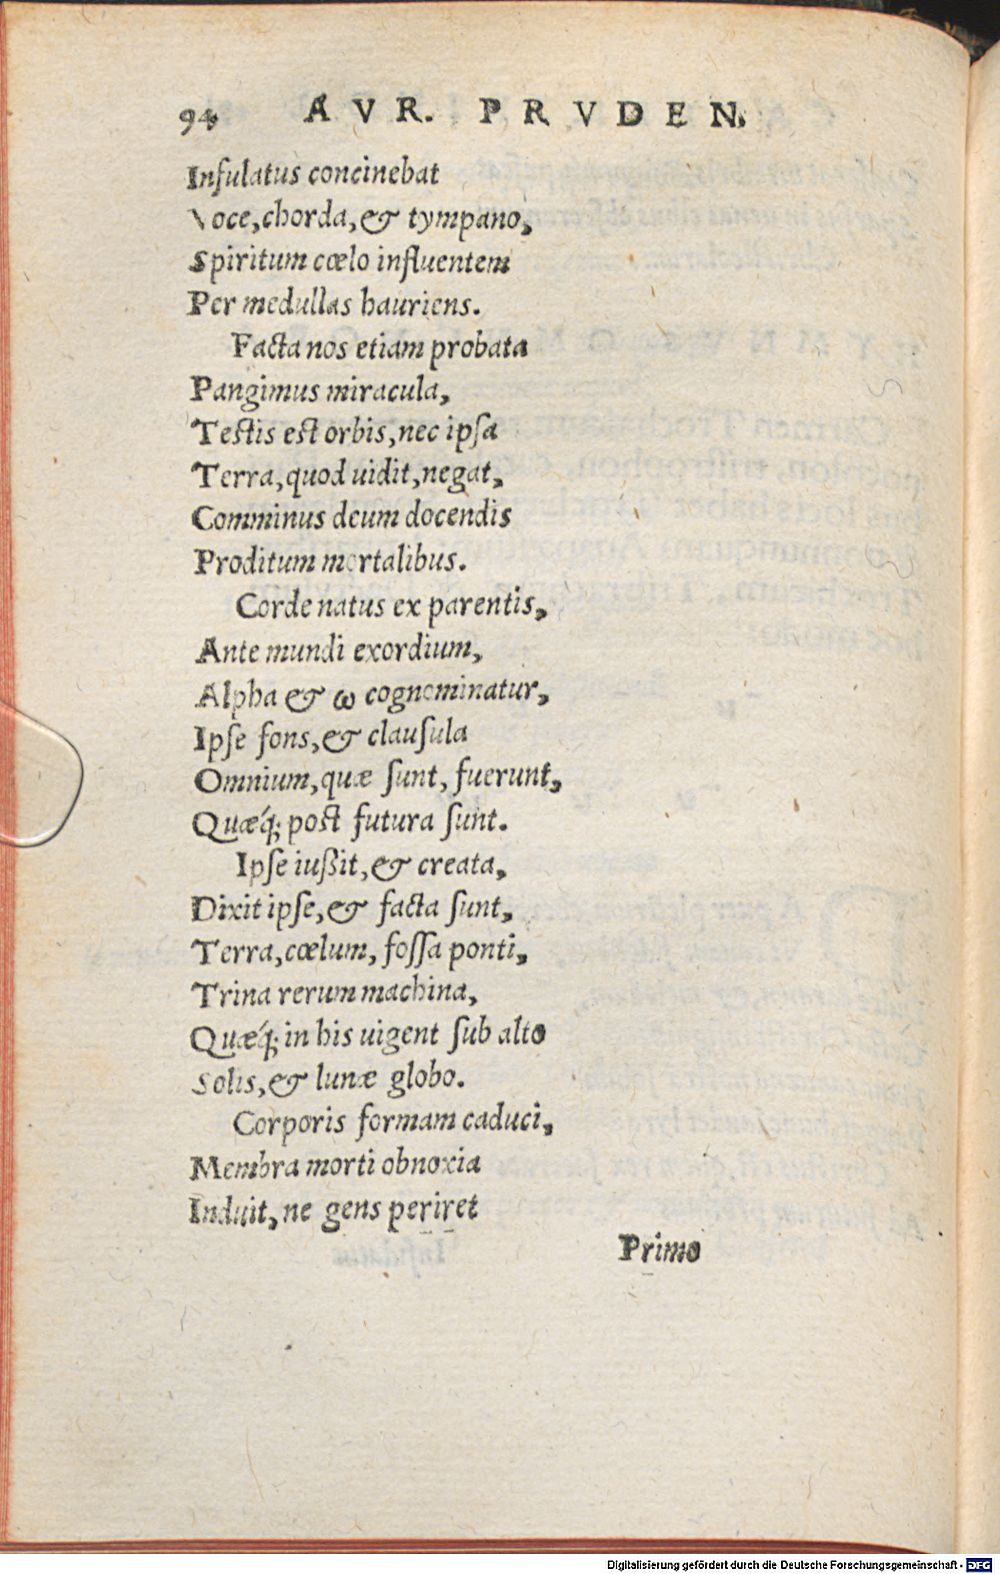 94 AVR. PRVDEN.
Infulatus concinebat
Voce, chorda, & tympano,
Spiritum cœlo influentem
Per medullas hauriens.
Facta nos etiam probata
Pangimus miracula,
Testis est orbis, nec ipſa
Terra, quod uidit, negat,
Comminus deum docendis
Proditum mortalibus.
Corde natus ex parentis,
Ante mundi exordium,
Alpha & ω cognominatur,
Ipſe fons, & clauſula
Omnium, quæ ſunt, fuerunt,
Quæq́; post futura ſunt.
Ipſe iußit, & creata,
Dixit ipſe, & facta ſunt,
Terra, cœlum, foſſa ponti,
Trina rerum machina,
Quæq́; in his uigent ſub alto
Solis, & lunæ globo.
Corporis formam caduci,
Membra morti obnoxia
Induit, ne gens periret
Primo
Digitalisierung gefördert durch die Deutsche Forschungsgemeinschaft - DFG